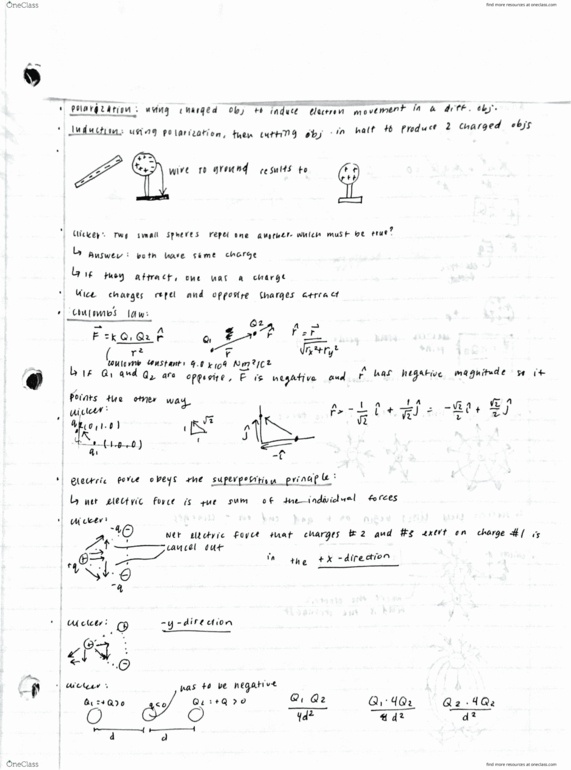 OneClass
find more resources at oneclass.com
• polarization: using charged obj to induce electron movement in a diff. obj.
• Induction: using polarization, then cutting obj. in half to produce 2 charged objs
wire to ground results to
clicker: Two small spheres repel one another. which must be true?
↳ Answer: both have same charge
↳ if they attract, one has a charge
• like charges repel and opposite charges attract
• coulomb's law:
F = k Q1 Q2 r̂ / r²
Q1 Q2 r
r̂ = r / √rx²+ry²
coulomb constant: 9.0 x10⁹ Nm²/C²
↳ If Q1 and Q2 are opposite, F is negative and r̂ has negative magnitude so it
points the other way
clicker:
(0,1.0)
q1 (1.0,0)
1 √2 1
ĵ -î
r̂ = -1/√2 î + 1/√2 ĵ = -√2/2 î + √2/2 ĵ
• electric force obeys the superposition principle:
↳ net electric force is the sum of the individual forces
• clicker:
-q
+q
-q
cancel out
Net electric force that charges #2 and #3 exert on charge #1 is
in the +x-direction
• clicker: -y-direction
• clicker: has to be negative
Q1=+Q>0 q<0 Q2=+Q>0
d d
Q1 Q2 / 4d²
Q1·4Q2 / d²
Q2·4Q2 / d²
OneClass
find more resources at oneclass.com